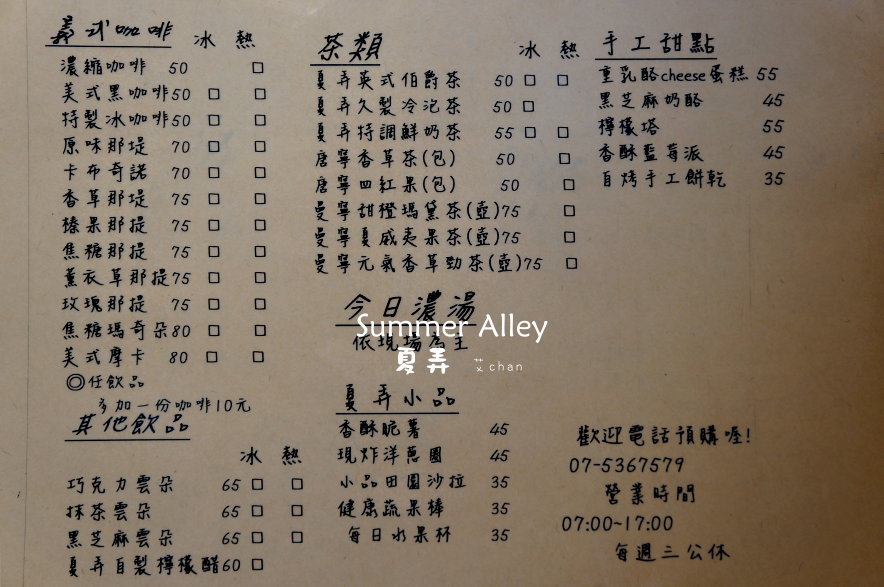 義式咖啡 冰 熱
濃縮咖啡 50 □
美式黑咖啡 50 □ □
特製冰咖啡 50 □ □
原味那堤 70 □ □
卡布奇諾 70 □ □
香草那堤 75 □ □
榛果那提 75 □ □
焦糖那提 75 □ □
薰衣草那提 75 □ □
玫瑰那提 75 □ □
焦糖瑪奇朵 80 □ □
美式摩卡 80 □ □
◎任飲品
多加一份咖啡10元
其他飲品
冰 熱
巧克力雲朵 65 □ □
抹茶雲朵 65 □ □
黑芝麻雲朵 65 □ □
夏弄自製檸檬醋 60 □
茶類 冰 熱
夏弄英式伯爵茶 50 □ □
夏弄久製冷泡茶 50 □
夏弄特調鮮奶茶 55 □ □
唐寧香草茶(包) 50 □
唐寧四紅果(包) 50 □
曼寧甜橙瑪黛茶(壺) 75 □
曼寧夏威夷果茶(壺) 75 □
曼寧元氣香草勁茶(壺) 75 □
今日濃湯
依現場為主
Summer Alley
夏弄 艾chan
夏弄小品
香酥脆薯 45
現炸洋蔥圈 45
小品田園沙拉 35
健康蔬果棒 35
每日水果杯 35
手工甜點
重乳酪cheese蛋糕 55
黑芝麻奶酪 45
檸檬塔 55
香酥藍莓派 45
自烤手工餅乾 35
歡迎電話預購喔!
07-5367579
營業時間
07:00~17:00
每週三公休